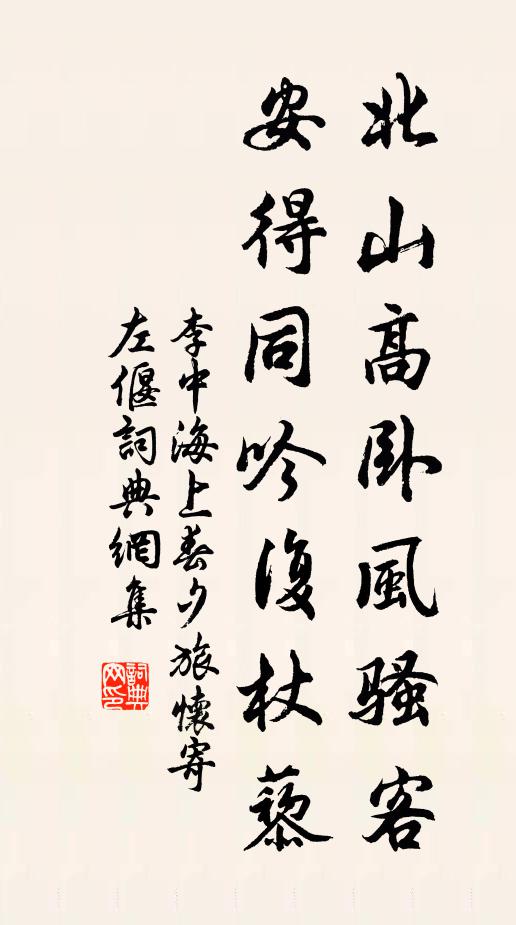 北山高卧風騷客
安得同吟復杖藜
李中海上春夕旅懷寄
左偃詞典網集
詞典
网印